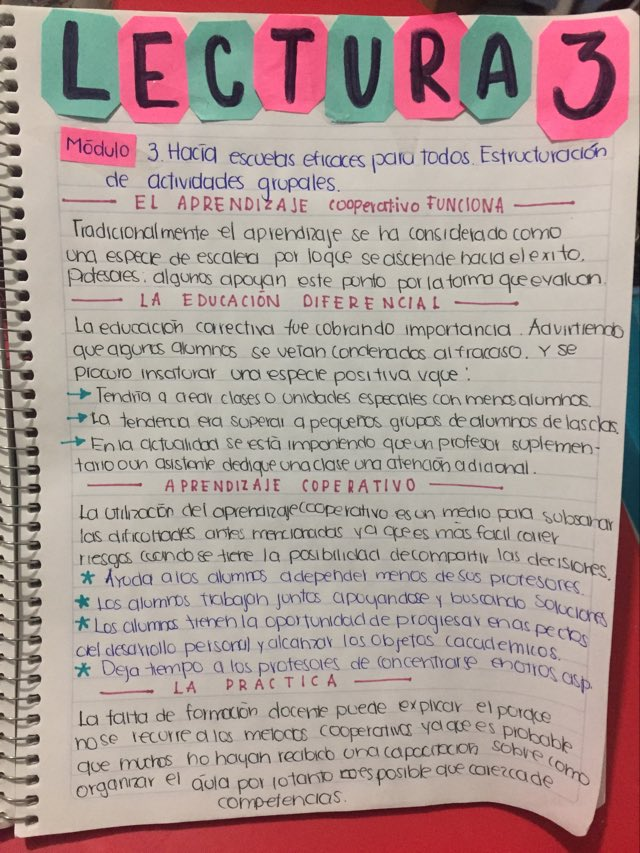 LECTURA 3
Módulo 3. Hacia escuelas eficaces para todos. Estructuración
de actividades grupales.
EL APRENDIZAJE cooperativo FUNCIONA
Tradicionalmente el aprendizaje se ha considerado como
una especie de escalera por lo que se asciende hacia el exito.
Profesores: algunos apoyan este punto por la forma que evaluan.
LA EDUCACIÓN DIFERENCIAL
La educación carectiva fue cobrando importancia. Advirtiendo
que algunos alumnos se veían condenados al fracaso. Y se
procuro insaturar una especie positiva yaque:
→ Tendría a crear clases o unidades especiales con menos alumnos.
→ La tendencia era superar a pequeños grupos de alumnos de las clas.
→ En la actualidad se está imponiendo que un profesor suplemen-
tario o un asistente dedique una clase una atención adicional.
APRENDIZAJE COPERATIVO
La utilización del aprendizaje cooperativo es un medio para subsanar
las dificoltades antes mencionadas ya que es más facil correr
riesgos cuando se tiene la posibilidad de compartir las decisiones.
* Ayuda a los alumnos a depender menos de sus profesores.
* Los alumnos trabajan juntos apoyandose y buscando soluciones
* Los alumnos tienen la oportunidad de progresar en aspectos
del desarrollo personal y alcanzar los objetos academicos.
* Deja tiempo a los profesores de concentrarse en otros asp.
LA PRACTICA
La falta de formación docente puede explicar el porque
no se recurre a los metodos cooperativos ya que es probable
que muchos no hayan recibido una capacitacion sobre como
organizar el áula por lo tanto es posible que carezca de
competencias.